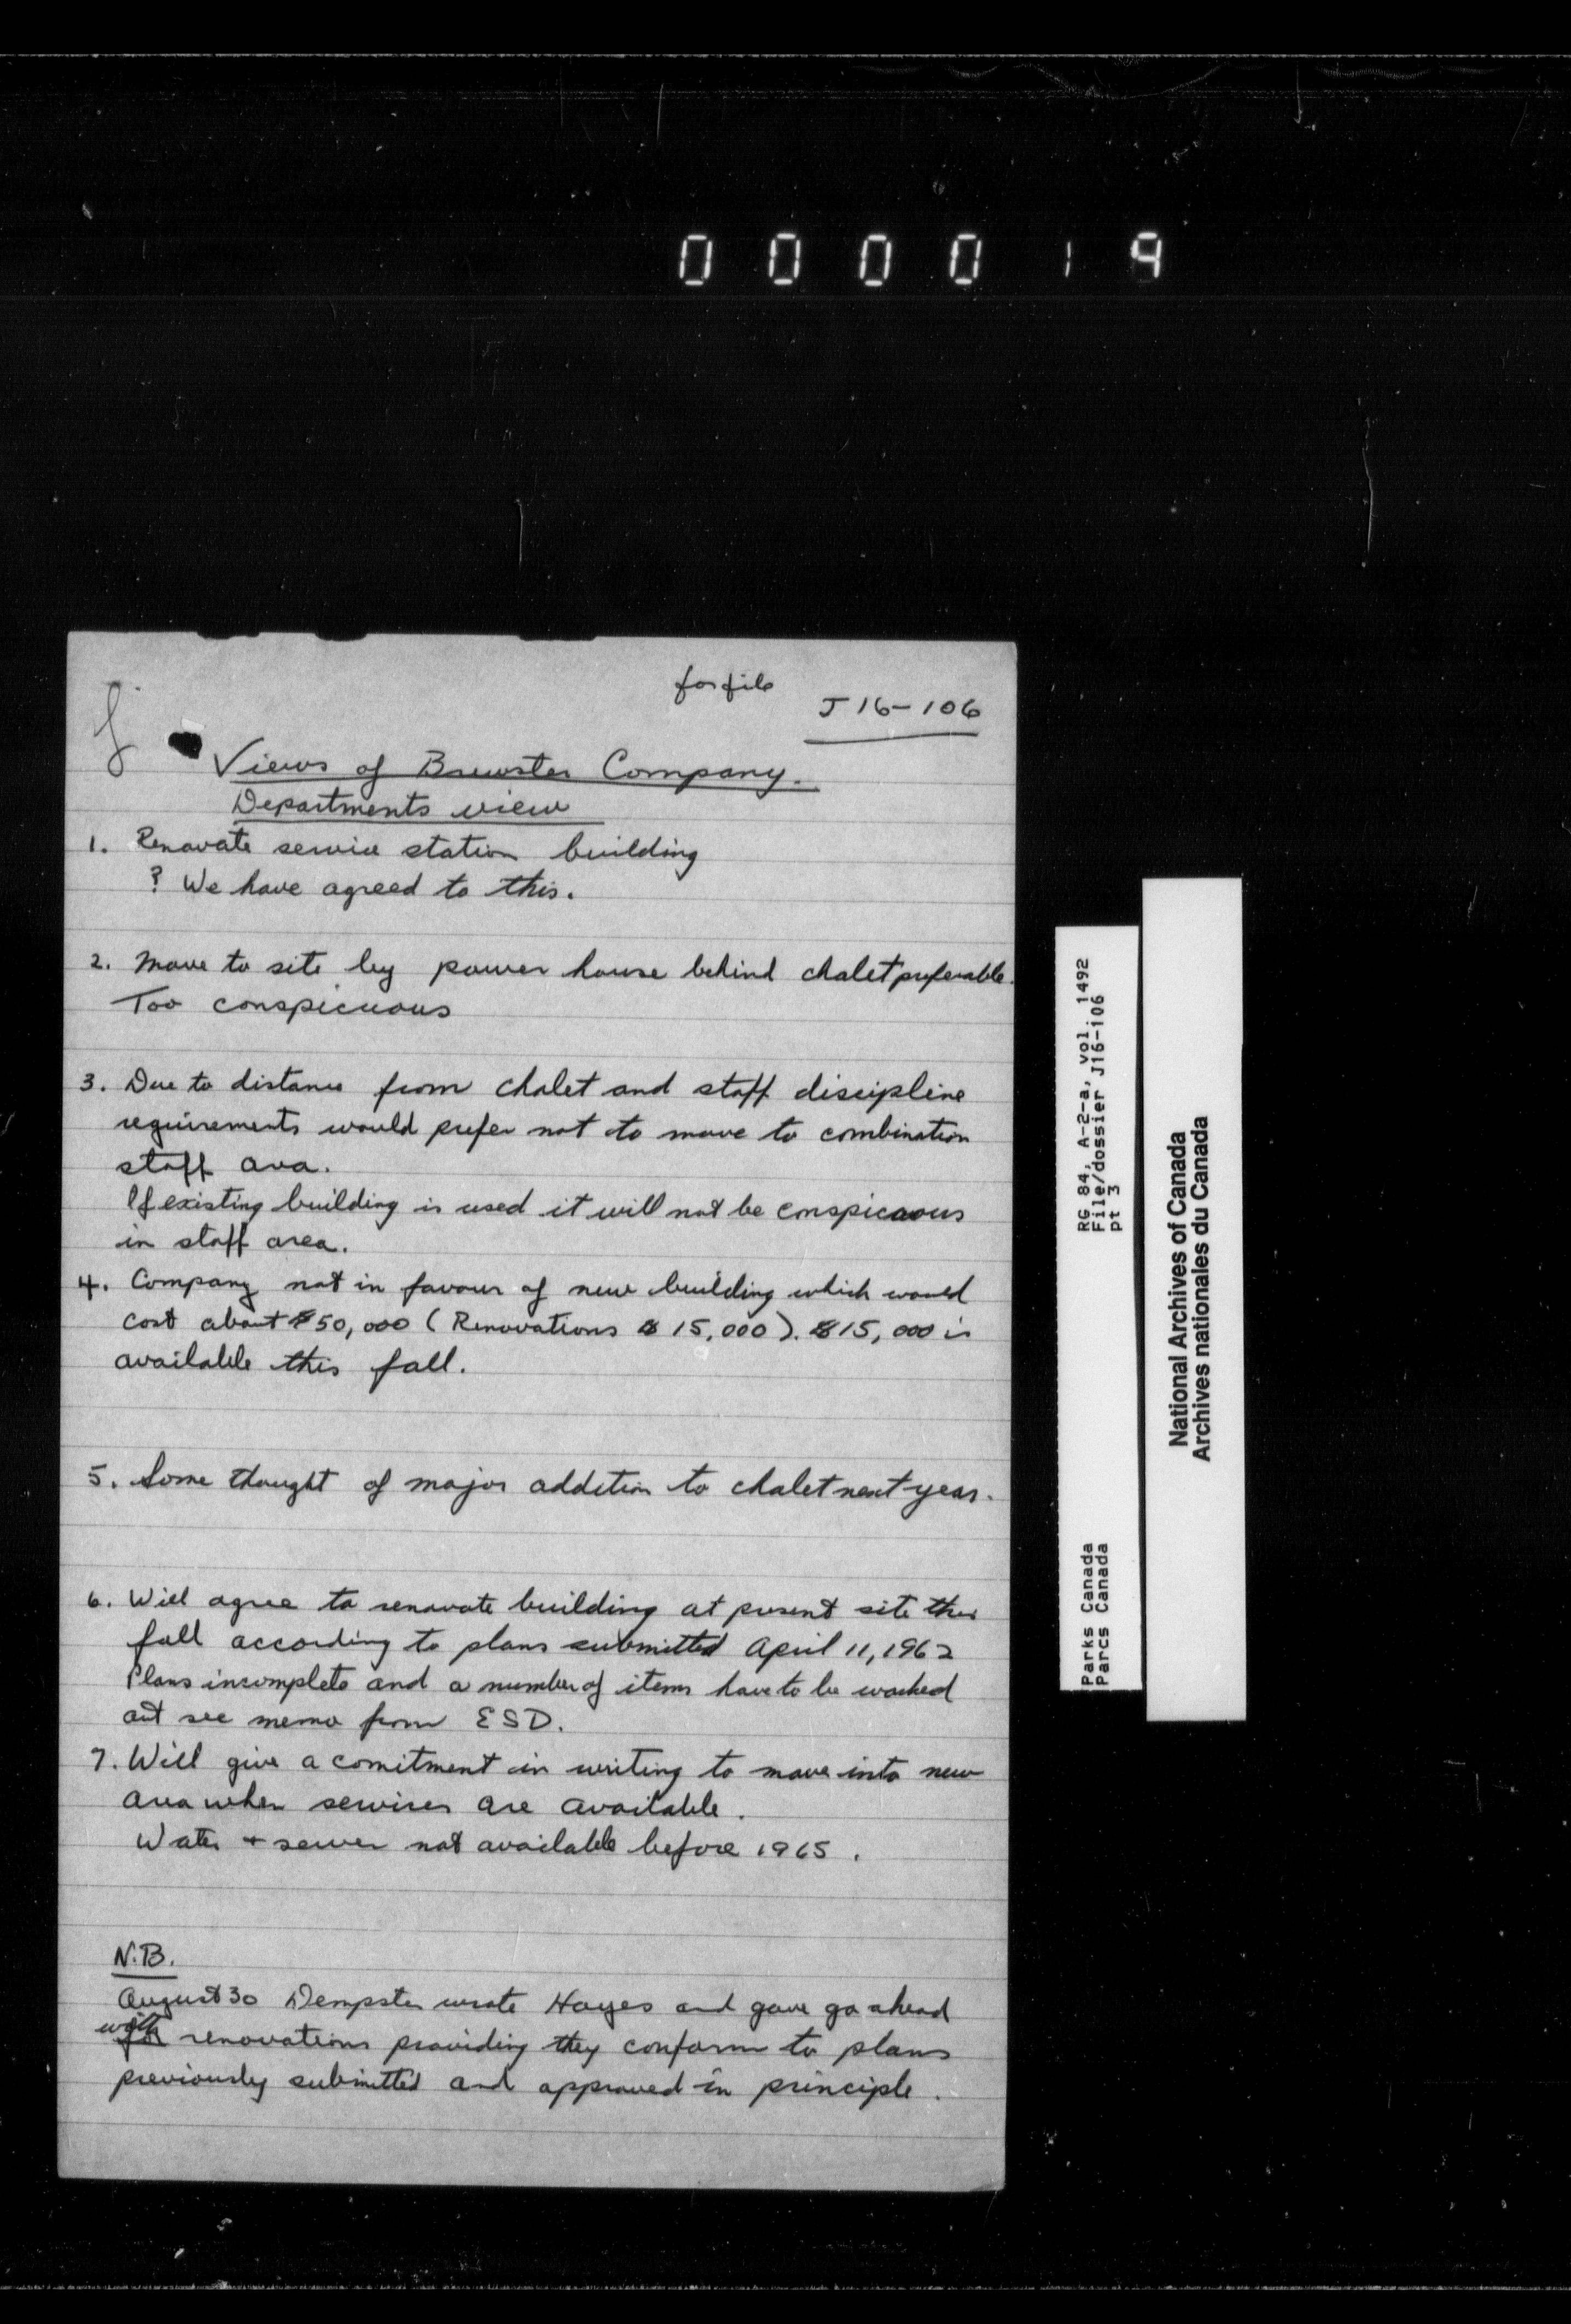 000019
for file
J 16-106
Views of Brewster Company.
Departments view
1. Renovate service station building
? We have agreed to this.
2. Move to site by power house behind chalet preferable.
Too conspicuous
3. Due to distance from chalet and staff discipline
requirements would prefer not to move to combination
staff area.
If existing building is used it will not be conspicuous
in staff area.
4. Company not in favour of new building which would
cost about $50,000 (Renovations $ 15,000). $15,000 is
available this fall.
5. Some thought of major addition to chalet next year.
6. Will agree to renovate building at present site this
fall according to plans submitted April 11, 1962
Plans incomplete and a number of items have to be worked
out see memo from ESD.
7. Will give a comitment in writing to move into new
area when services are available.
Water + sewer not available before 1965.
N.B.
August 30 Dempster wrote Hayes and gave go ahead
with renovations providing they conform to plans
previously submitted and approved in principle.
RG 84, A-2-a, vol. 1492
File/dossier J16-106
pt 3
Parks Canada
Parcs Canada
National Archives of Canada
Archives nationales du Canada